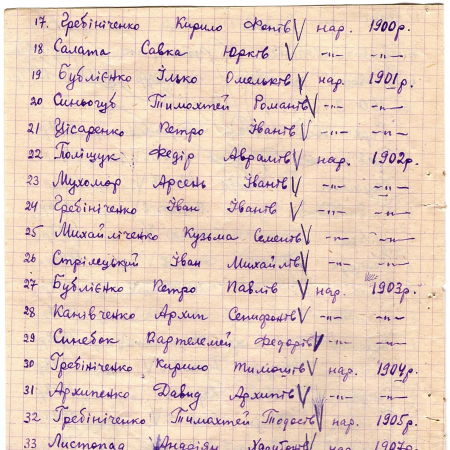 17. Гребініченко Кирило Фотів нар. 1900р.
18 Салата Савка Юрків -"- -"-
19 Бублієнко Їлько Омельків нар. 1901р.
20 Синьогуб Тимохтей Романів -"- -"-
21 Цісаренко Петро Іванів -"- -"-
22 Поліщук Федір Аврамів нар. 1902р.
23 Мухомор Арсень Іванів -"- -"-
24 Гребініченко Іван Іванів -"- -"-
25 Михайліченко Кузьма Семенів -"- -"-
26 Стрілецький Іван Михайлів -"- -"-
27 Бублієнко Петро Павлів нар. 1903р.
28 Канівченко Архип Ксенифонтів -"- -"-
29 Синебок Вартелемей Федорів -"- -"-
30 Гребініченко Кирило Тимошів нар. 1904р.
31 Архипенко Давид Архипів -"- -"-
32 Гребініченко Тимохтей Тодосів нар. 1905р.
33 Листопад нар. 1907р.